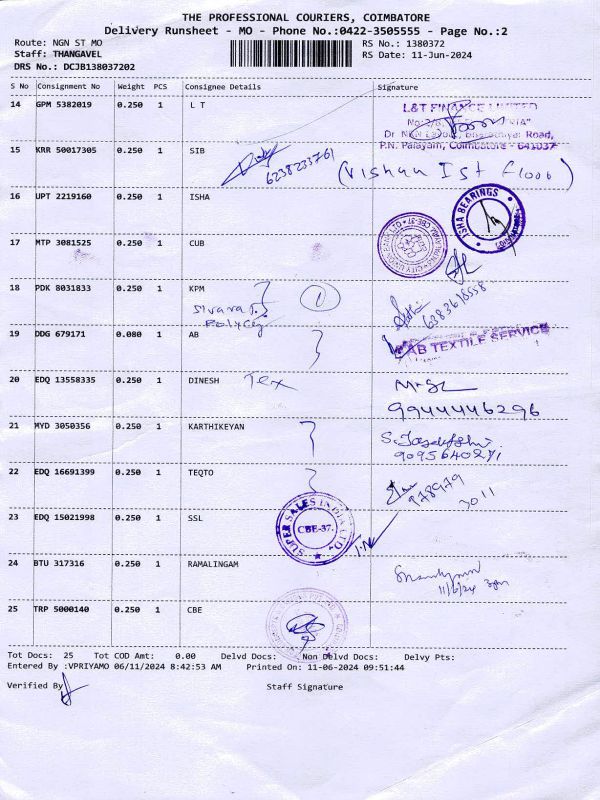 THE PROFESSIONAL COURIERS, COIMBATORE
Delivery Runsheet - MO - Phone No.:0422-3505555 - Page No.:2
Route: NGN ST MO
RS No.: 1380372
Staff: THANGAVEL
RS Date: 11-Jun-2024
DRS No.: DCJB138037202
S No Consignment No Weight PCS Consignee Details Signature
14 GPM 5382019 0.250 1 L T
L&T FINANCE LIMITED
Road,
P.N. Palayam, Coimbatore - 641037
15 KRR 50017305 0.250 1 SIB
6238233761
(Vishan Ist floor)
16 UPT 2219160 0.250 1 ISHA
ISHA BEARINGS
17 MTP 3081525 0.250 1 CUB
CITY UNION BANK LTD CBE-37
18 PDK 8031833 0.250 1 KPM
1
6383618558
19 DDG 679171 0.080 1 AB
AB TEXTILE SERVICE
20 EDQ 13558335 0.250 1 DINESH Tex
9944446296
21 MYD 3050356 0.250 1 KARTHIKEYAN
22 EDQ 16691399 0.250 1 TEQTO
978979
3011
23 EDQ 15021998 0.250 1 SSL
SUPER SALES INDIA LTD.
CBE-37.
24 BTU 317316 0.250 1 RAMALINGAM
11/6/24 3pm
25 TRP 5000140 0.250 1 CBE
Tot Docs: 25 Tot COD Amt: 0.00 Delvd Docs: Non Delvd Docs: Delvy Pts:
Entered By :VPRIYAMO 06/11/2024 8:42:53 AM Printed On: 11-06-2024 09:51:44
Verified By
Staff Signature